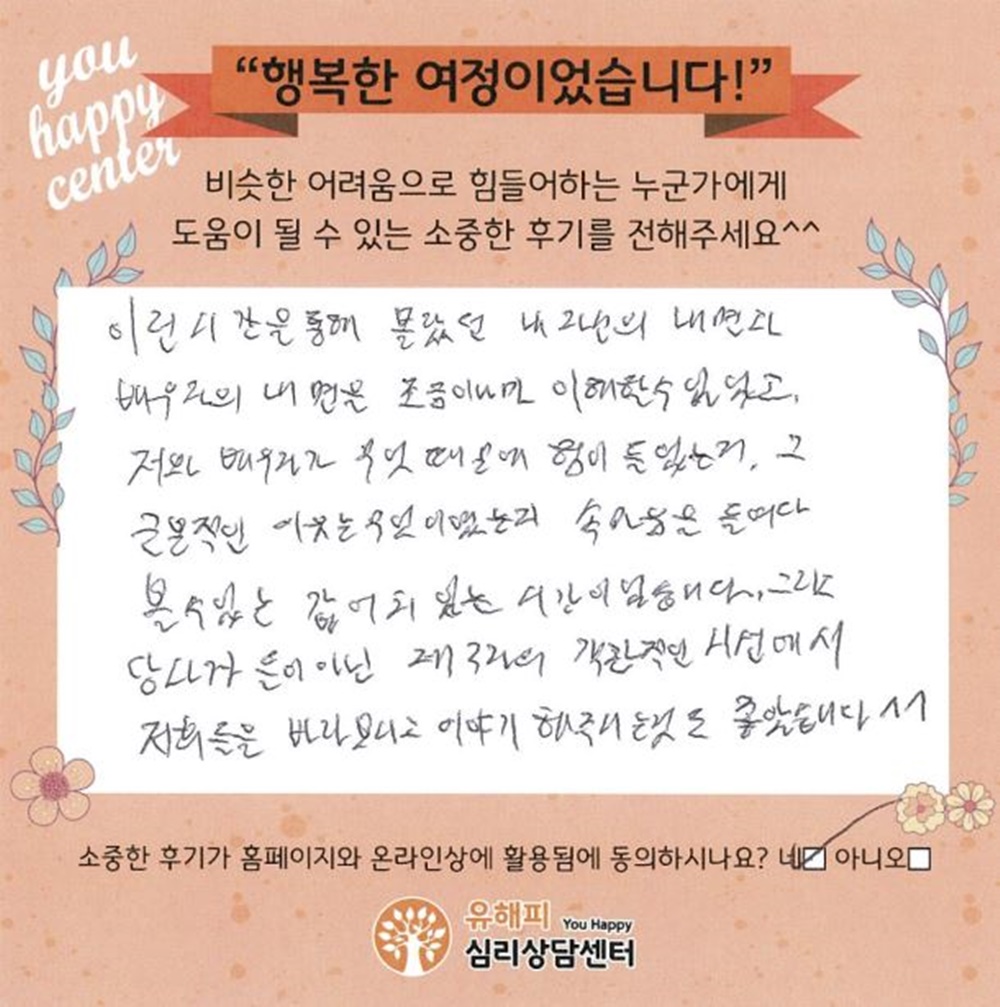 you
happy
center
“행복한 여정이었습니다!”
비슷한 어려움으로 힘들어하는 누군가에게
도움이 될 수 있는 소중한 후기를 전해주세요^^
이런 시간을 통해 몰랐던 내 자신의 내면과
배우자의 내면을 조금이나마 이해할수 있었고,
저와 배우자가 무엇 때문에 힘이 들었는지, 그
근본적인 이유는 무엇이였는지 속마음을 들여다
볼 수 있는 값어치 있는 시간이었습니다., 그리고
당사자 들이 아닌 제 3자의 객관적인 시선에서
저희들을 바라보시고 이야기 해주시는것도 좋았습니다 ^^
소중한 후기가 홈페이지와 온라인상에 활용됨에 동의하시나요? 네 아니오
유해피 You Happy
심리상담센터